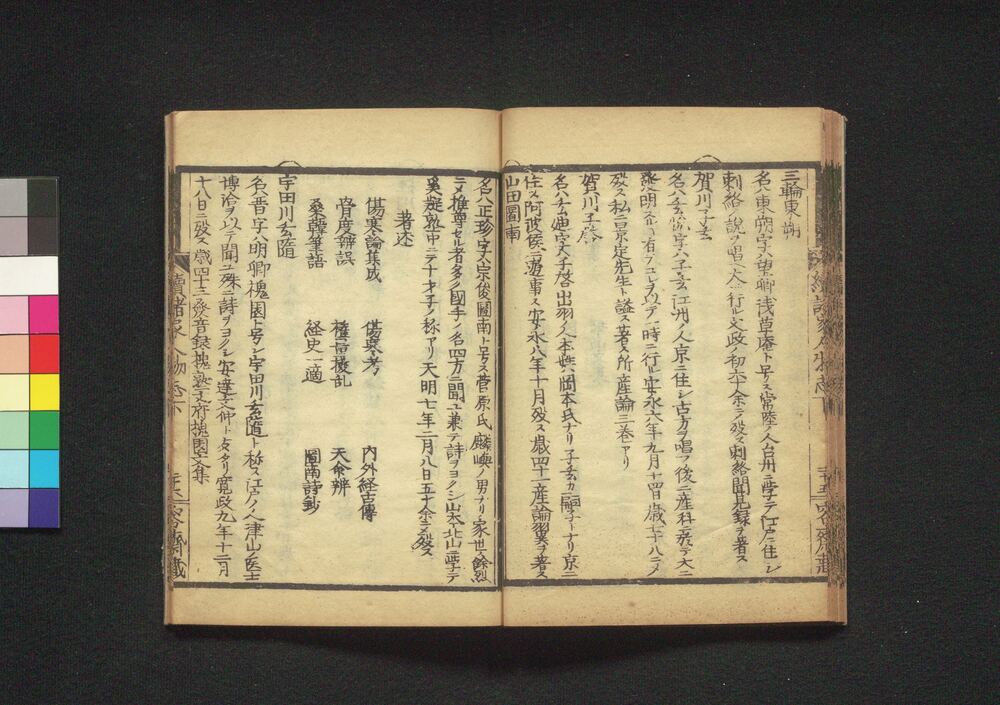 三輪東朔
名ハ東朔字ハ望卿浅草菴ト号ス常陸ノ人台州ニ学テ江戸ニ住シ
刺絡ノ説ヲ唱ヘ大ニ行ル文政初六十余ニテ歿ス刺絡聞見録ヲ著ス
賀川子玄
名ハ玄流字ハ子玄江州ノ人京ニ住シ古方ヲ唱ヲ後ニ産科ニ依テ大ニ
発明スル有ヲコレヲ以テ一時ニ行ル安永六年九月十四日歳七十八ニメ
歿ス私ニ京定先生ト謚ス著ス所産論三巻アリ
賀川子啓
名ハ玄迪字ハ子啓出羽ノ人本姓ハ岡本氏ナリ子玄カ嗣子トナリ京ニ
住ス阿波侯ニ遊事ス安永八年十月歿ス歳四十一産論翼ヲ著ス
山田圖南
名ハ正珍字ハ宗俊圖南ト号ス菅原氏麟嶼ノ男ナリ家世ノ餘烈
ニメ推尊セル者多ク國手ノ名四方ニ聞ユ兼テ詩ヲヨクシ山本北山ニ学テ
奚疑塾中ニテ十才子ノ称アリ天明七年二月八日五十余ニメ歿ス
著述
傷寒論集成 傷寒考 内外経古傳
骨度辨誤 權量撥乱 天命辨
桑韓筆語 経史一適 圖南詩鈔
宇田川玄隨
名ハ晋字ハ明卿槐園ト号シ宇田川玄隨ト称ス江戸ノ人津山ノ医士
博洽ヲ以テ聞ユ殊ニ詩ヲヨクシ安達文仲ト友タリ寛政九年十二月
十八日ニ歿ス歳四十三發音録槐塾文府槐園文集
續諸家人物志下
二十五
二十六